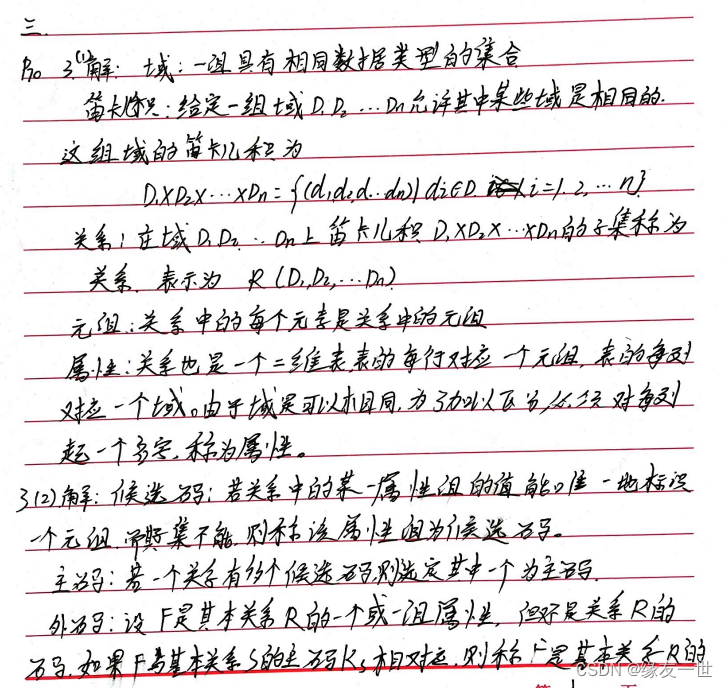 三.
P70 3.(1)解: 域:一组具有相同数据类型的集合
笛卡尔积:给定一组域D1 D2 … Dn允许其中某些域是相同的.
这组域的笛卡儿积为
D1×D2×…×Dn={(d1,d2,d…dn)| di∈D i=1.2,…n}
关系:在域D1,D2…Dn上笛卡儿积D1×D2×…×Dn的子集称为
关系. 表示为 R(D1,D2,…Dn)
元组:关系中的每个元素是关系中的元组
属性:关系也是一个二维表,表的每行对应一个元组,表的每列
对应一个域。由于域是可以相同,为了加以区分,必须对每列
起一个名字,称为属性。
3(2)解:候选码:若关系中的某一属性组的值能唯一地标识
一个元组,而其子集不能,则称该属性组为候选码。
主码:若一个关系有多个候选码,则选定其中一个为主码.
外码:设F是基本关系R的一个或一组属性,但不是关系R的
码,如果F与基本关系S的主码Ks相对应,则称F是基本关系R的
CSDN @缘友一世
第 1 页